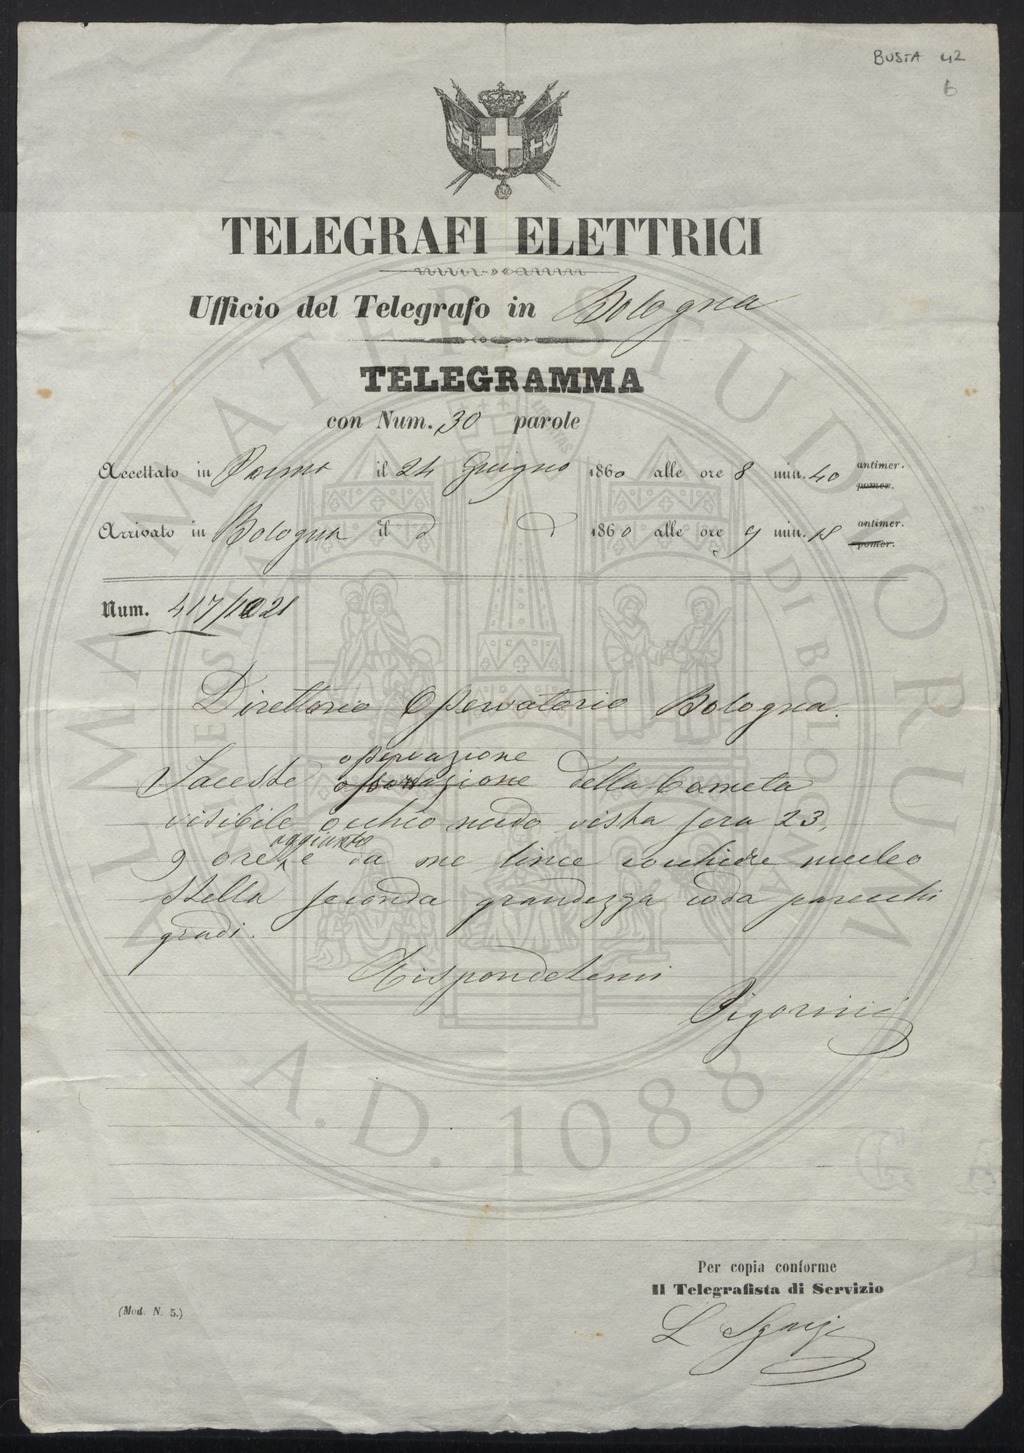 BUSTA 42
6
TELEGRAFI ELETTRICI
Ufficio del Telegrafo in Bologna
TELEGRAMMA
con Num. 30 parole
Accettato in Parma il 24 Giugno 1860 alle ore 8 min. 40 antimer. pomer.
Arrivato in Bologna il d d 1860 alle ore 9 min. 18 antimer. pomer.
Num. 417/1021
Direttorio Osservatorio Bologna.
osservazione
Faceste osservazione della Cometa
visibile occhio nudo vista sera 23,
aggiunto
9 ore e da me lince nucleo
stella seconda grandezza coda parecchi
gradi.
Rispondetemi
Pigorini
Per copia conforme
Il Telegrafista di Servizio
L
(Mod. N. 5.)
ALMA MATER STUDIORUM
UNIVERSITAS DI BOLOGNA
A.D. 1088